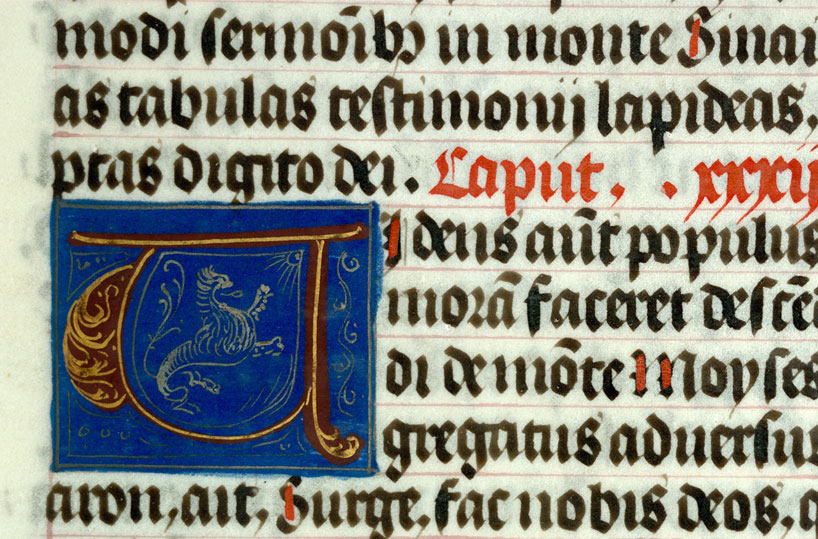 modi sermōibꝫ in monte Sinai
as tabulas testimonij lapideas,
ptas digito dei. Caput. . xxxij
VIdens aūt populus
morā faceret descē
di de mōte Moyses
gregatus aduersus
aron, ait, Surge, fac nobis deos, q